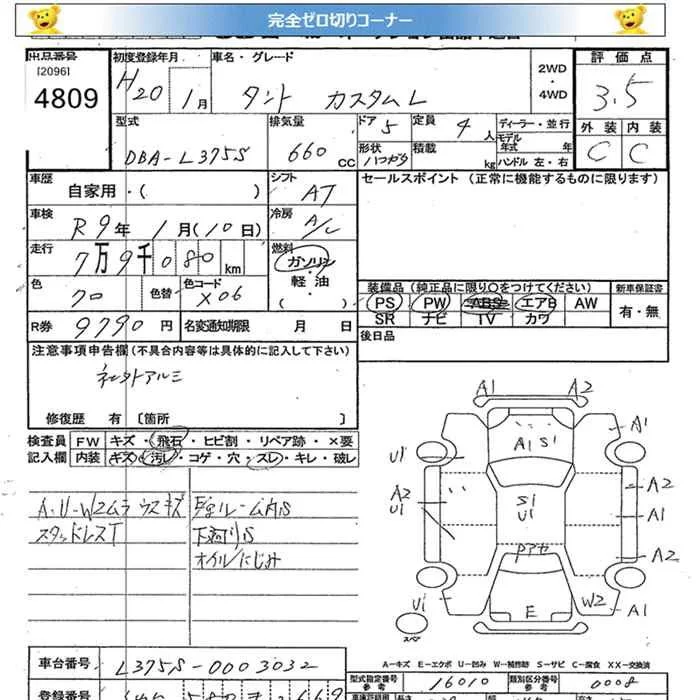 完全ゼロ切りコーナー
出品番号
[2096]
4809
初度登録年月
H20 1月
車名・グレード
タント カスタムL
2WD
・
4WD
評価点
3.5
外装 内装
C C
型式
DBA-L375S
排気量
660 cc
ドア 5
形状
定員 4人
積載 kg
ディーラー・並行
モデル年式 年
ハンドル 左・右
車歴
自家用・( )
シフト
AT
セールスポイント (正常に機能するものに限ります)
車検
R9年 1月(10日)
冷房
A/C
走行
7万9千080km
燃料
ガソリン
・
軽油
・
( )
色
色替
色コード
X06
装備品(純正品に限り○をつけてください)
新車保証書
PS PW ABS エアB AW
有・無
SR ナビ TV カワ
R券
9790円
名変通知期限 月 日
後日品
注意事項申告欄(不具合内容等は具体的に記入して下さい)
修復歴 有 〔箇所 〕
検査員 FW キズ・飛石・ヒビ割・リペア跡・×要
記入欄 内装 キズ・汚レ・コゲ・穴・スレ・キレ・破レ
A.U-W2ムラ ウスキズ
スタッドレスT
下廻りS
オイルにじみ
A1 A2
A1
A1 S1
U1
A2
A2
U1
S1
U1
A1
Pアセ
A2
U1
E
W2
A1
スペア
A-キズ E-エクボ U-凹み W-補修跡 S-サビ C-腐食 XX-交換済
車台番号
L375S-0003032
型式指定番号
参考
16010
類別区分番号
参考
0008
登録番号